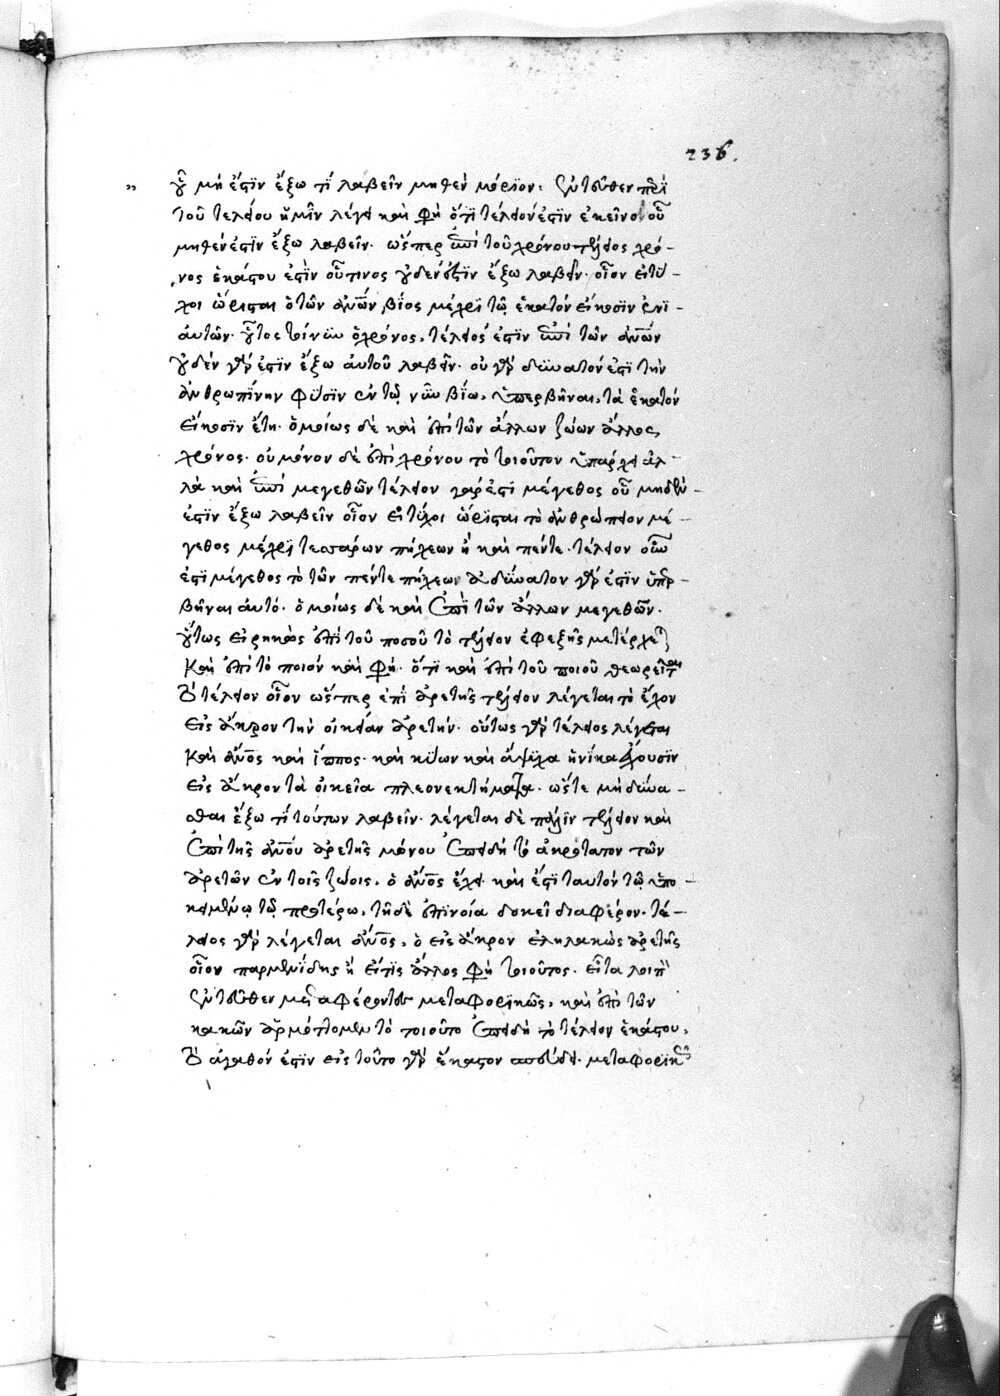 236.
„ οὗ μή ἐστιν ἔξω τὶ λαβεῖν μηθὲν μόριον: ἐντεῦθεν περὶ
τοῦ τελείου ἡμῖν λέγει καὶ φὴ ὅτι τέλειόν ἐστιν ἐκεῖνο οὗ
μηθέν ἐστιν ἔξω λαβεῖν. ὥσπερ ἐπὶ τοῦ χρόνου τέλειος χρό-
νος ἑκάστου ἐστὶν οὗτινος οὐδέν ἐστιν ἔξω λαβεῖν. οἷον εἰ τύ-
χοι ὥρισται ὁ τῶν ἀνων βίος μέχρι τῶ ἑκατόν εἴκοσιν ἐνι-
αυτῶν. οὗτος τοίνυν ὁ χρόνος, τέλειός ἐστιν ἐπὶ τῶν ἀνων
οὐδέν γάρ ἐστιν ἔξω αὐτοῦ λαβεῖν. οὐ γὰρ δυνατόν ἐστι τὴν
ἀνθρωπίνην φύσιν ἐν τῶ νῦν βίω, ὑπερβῆναι, τὰ ἑκατόν
εἴκοσιν ἔτη. ὁμοίως δὲ καὶ ἐπὶ τῶν ἄλλων ζώων ἄλλος
χρόνος. οὐ μόνον δὲ ἐπὶ χρόνου τὸ τοιοῦτον ὑπάρχει ἀλ-
λὰ καὶ ἐπὶ μεγεθῶν τέλειον γάρ ἐστι μέγεθος οὗ μηδέν
ἐστιν ἔξω λαβεῖν οἷον εἰ τύχοι ὥρισται τὸ ἀνθρώπειον μέ-
γεθος μέχρι τεσσάρων πήχεων ἢ καὶ πέντε. τέλειον οὖν
ἐστι μέγεθος τὸ τῶν πέντε πήχεων ἀδύνατον γάρ ἐστιν ὑπερ-
βῆναι αὐτό. ὁμοίως δὲ καὶ ἐπὶ τῶν ἄλλων μεγεθῶν.
οὕτως εἰρηκὼς ἐπὶ τοῦ ποσοῦ τὸ τέλειον ἐφεξῆς μετέρχεται
καὶ ἐπὶ τὸ ποιόν καὶ φὴ. ὅτι καὶ ἐπὶ τοῦ ποιοῦ θεωρεῖται
τὸ τέλειον οἷον ὥσπερ ἐπὶ ἀρετῆς τέλειον λέγεται τὸ ἔχον
εἰς ἄκρον τὴν οἰκείαν ἀρετήν. οὕτως γὰρ τέλειος λέγεται
καὶ ἀνος καὶ ἵππος. καὶ κύων καὶ ἄψυχα ἡνίκα ἔχουσιν
εἰς ἄκρον τὰ οἰκεῖα πλεονεκτήματα. ὥστε μὴ δύνα-
σθαι ἔξω τὶ τούτων λαβεῖν. λέγεται δὲ πάλιν τέλειον καὶ
ἐπὶ τῆς ἀνου ἀρετῆς μόνου ἐπειδὴ τὸ ἀκρότατον τῶν
ἀρετῶν ἐν τοῖς ζώοις, ὁ ἀνος ἔχει καὶ ἐστὶ ταυτόν τῶ ὑπο-
κειμένω τῶ προτέρω, τῆ δὲ ἐπινοία δοκεῖ διαφέρον. τέ-
λειος γὰρ λέγεται ἀνος, ὁ εἰς ἄκρον ἐληλακὼς ἀρετῆς
οἷον παρμενίδης ἢ εἴ τις ἄλλος φὴ τοιοῦτος. εἶτα λοιπὸν
ἐντεῦθεν μεταφέροντες μεταφορικῶς, καὶ ἐπὶ τῶν
κακῶν ἁρμόττομεν τὸ τοιοῦτο ἐπειδὴ τὸ τέλειον ἑκάστου,
τὸ ἀγαθόν ἐστιν εἰς τοῦτο γὰρ ἕκαστον σπεύδει. μεταφορικῶς